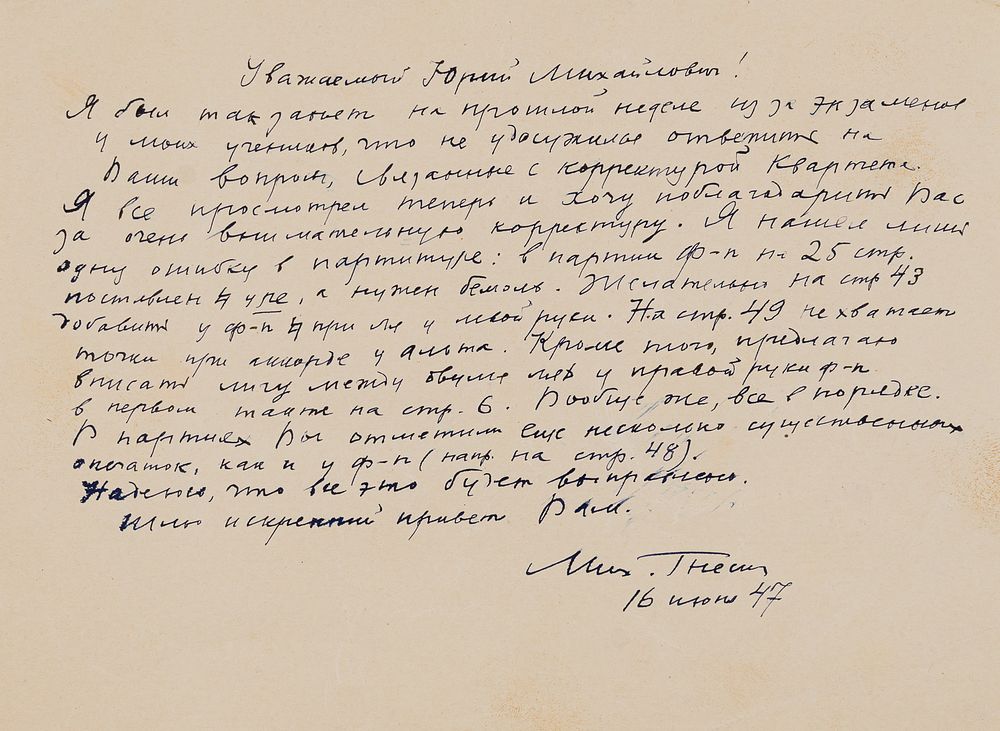 Уважаемый Юрий Михайлович!
Я был так занят на прошлой неделе из за экзаменов
у моих учеников, что не удосужился ответить на
Ваши вопросы, связанные с корректурой Квартета.
Я все просмотрел теперь и хочу поблагодарить Вас
за очень внимательную корректуру. Я нашел лишь
одну ошибку в партитуре: в партии ф-п на 25 стр.
поставлен ♮ у ре, а нужен бемоль. Желательно на стр 43
добавить у ф-п ♮ при ля у левой руки. На стр. 49 не хватает
точки при аккорде у альта. Кроме того, предлагаю
вписать лигу между двумя у правой руки ф-п
в первом такте на стр. 6. Вообще же, все в порядке.
В партиях Вы отметили еще несколько существенных
опечаток, как и у ф-п (напр. на стр. 48).
Надеюсь, что все это будет выправлено.
Шлю искренний привет Вам.
Мих. Гнесин
16 июня 47